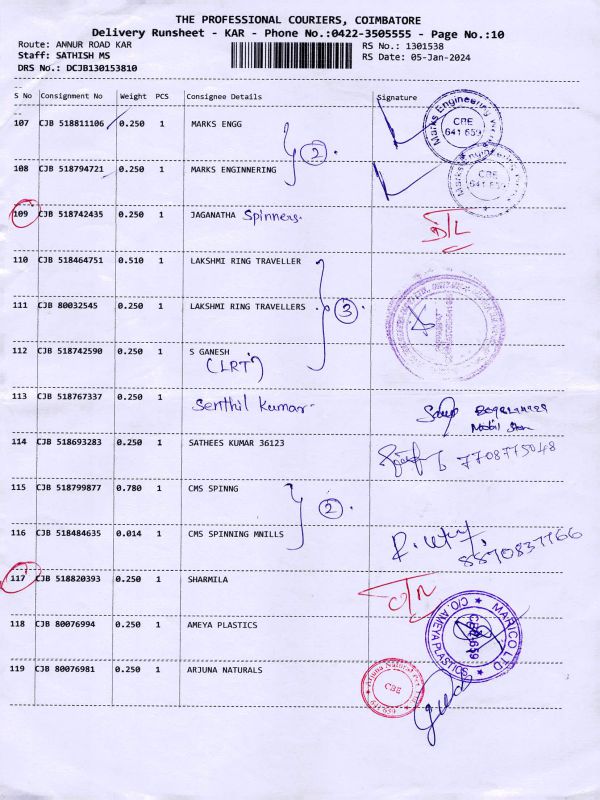 THE PROFESSIONAL COURIERS, COIMBATORE
Delivery Runsheet - KAR - Phone No.:0422-3505555 - Page No.:10
Route: ANNUR ROAD KAR RS No.: 1301538
Staff: SATHISH MS RS Date: 05-Jan-2024
DRS No.: DCJB130153810
S No Consignment No Weight PCS Consignee Details Signature
107 CJB 518811106 0.250 1 MARKS ENGG
2
Marks Engineering
CBE
641 659
108 CJB 518794721 0.250 1 MARKS ENGINNERING
CBE
641 659
109 CJB 518742435 0.250 1 JAGANATHA Spinners.
110 CJB 518464751 0.510 1 LAKSHMI RING TRAVELLER
111 CJB 80032545 0.250 1 LAKSHMI RING TRAVELLERS
3
112 CJB 518742590 0.250 1 S GANESH
(LRT)
113 CJB 518767337 0.250 1 Senthil Kumar
114 CJB 518693283 0.250 1 SATHEES KUMAR 36123
7708775048
115 CJB 518799877 0.780 1 CMS SPINNG
2
116 CJB 518484635 0.014 1 CMS SPINNING MNILLS
8870837766
117 CJB 518820393 0.250 1 SHARMILA
118 CJB 80076994 0.250 1 AMEYA PLASTICS
MARICO LTD
C/O. AMEYA PLASTICS
119 CJB 80076981 0.250 1 ARJUNA NATURALS
CBE